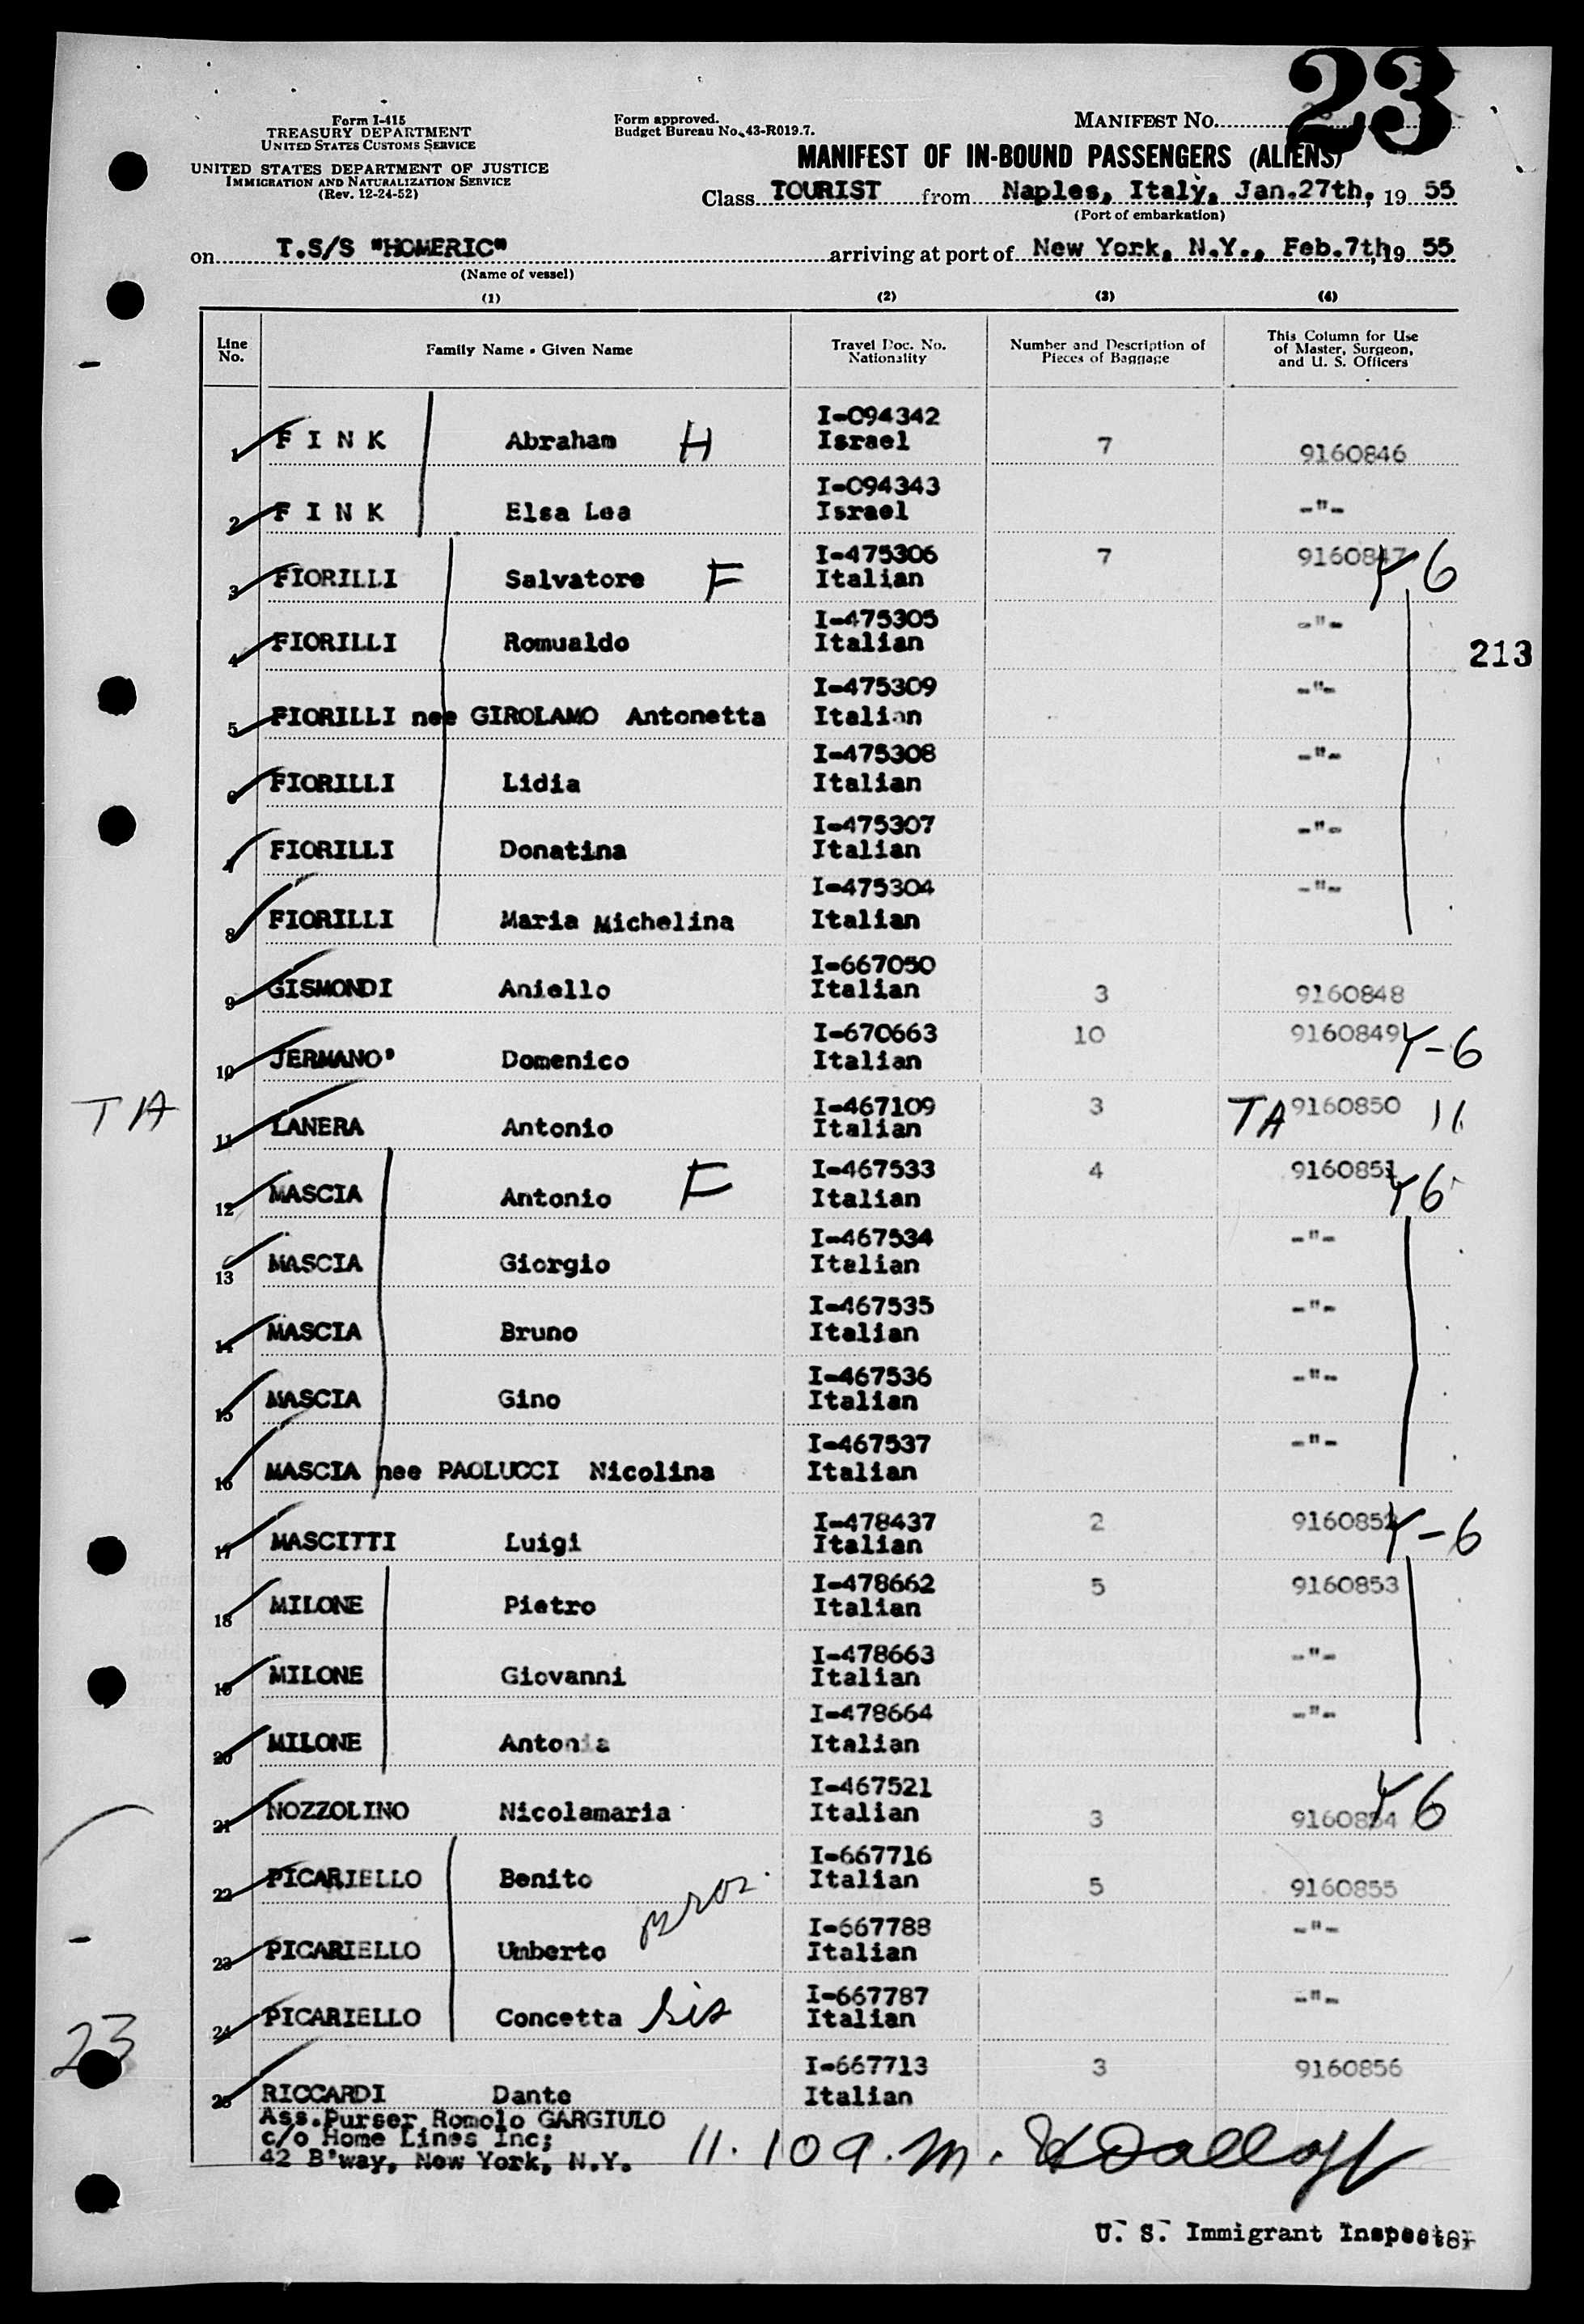 23
Form I-415
TREASURY DEPARTMENT
UNITED STATES CUSTOMS SERVICE
UNITED STATES DEPARTMENT OF JUSTICE
IMMIGRATION AND NATURALIZATION SERVICE
(Rev. 12-24-52)
Form approved.
Budget Bureau No. 43-R019.7.
MANIFEST NO.
MANIFEST OF IN-BOUND PASSENGERS (ALIENS)
Class TOURIST from Naples, Italy, Jan.27th, 19 55
(Port of embarkation)
on T.S/S "HOMERIC" arriving at port of New York, N.Y., Feb.7th, 19 55
(Name of vessel)
(1) (2) (3) (4)
Line No. Family Name - Given Name Travel Doc. No. Nationality Number and Description of Pieces of Baggage This Column for Use of Master, Surgeon, and U. S. Officers
I-094342
1 F I N K Abraham H Israel 7 9160846
I-094343
2 F I N K Elsa Lea Israel -"-
I-475306 7 9160847 Y6
3 FIORILLI Salvatore F Italian
I-475305 -"-
4 FIORILLI Romualdo Italian
213
I-475309 -"-
5 FIORILLI nee GIROLAMO Antonetta Italian
I-475308 -"-
6 FIORILLI Lidia Italian
I-475307 -"-
7 FIORILLI Donatina Italian
I-475304 -"-
8 FIORILLI Maria Michelina Italian
I-667050
9 GISMONDI Aniello Italian 3 9160848
I-670663 10 9160849 Y-6
10 JERMANO' Domenico Italian
TA I-467109 3 TA 9160850 11
11 LANERA Antonio Italian
I-467533 4 9160851 Y6
12 MASCIA Antonio F Italian
I-467534 -"-
13 MASCIA Giorgio Italian
I-467535 -"-
14 MASCIA Bruno Italian
I-467536 -"-
15 MASCIA Gino Italian
I-467537 -"-
16 MASCIA nee PAOLUCCI Nicolina Italian
I-478437 2 9160852 Y-6
17 MASCITTI Luigi Italian
I-478662 5 9160853
18 MILONE Pietro Italian
I-478663 -"-
19 MILONE Giovanni Italian
I-478664 -"-
20 MILONE Antonia Italian
I-467521 Y6
21 NOZZOLINO Nicolamaria Italian 3 9160854
I-667716
22 PICARIELLO Benito Italian 5 9160855
bros.
I-667788 -"-
23 PICARIELLO Umberto Italian
I-667787 -"-
24 PICARIELLO Concetta sis Italian
23
I-667713 3 9160856
25 RICCARDI Dante Italian
Ass.Purser Romolo GARGIULO
c/o Home Lines Inc;
42 B'way, New York, N.Y.
11.10 a.m.
U. S. Immigrant Inspector